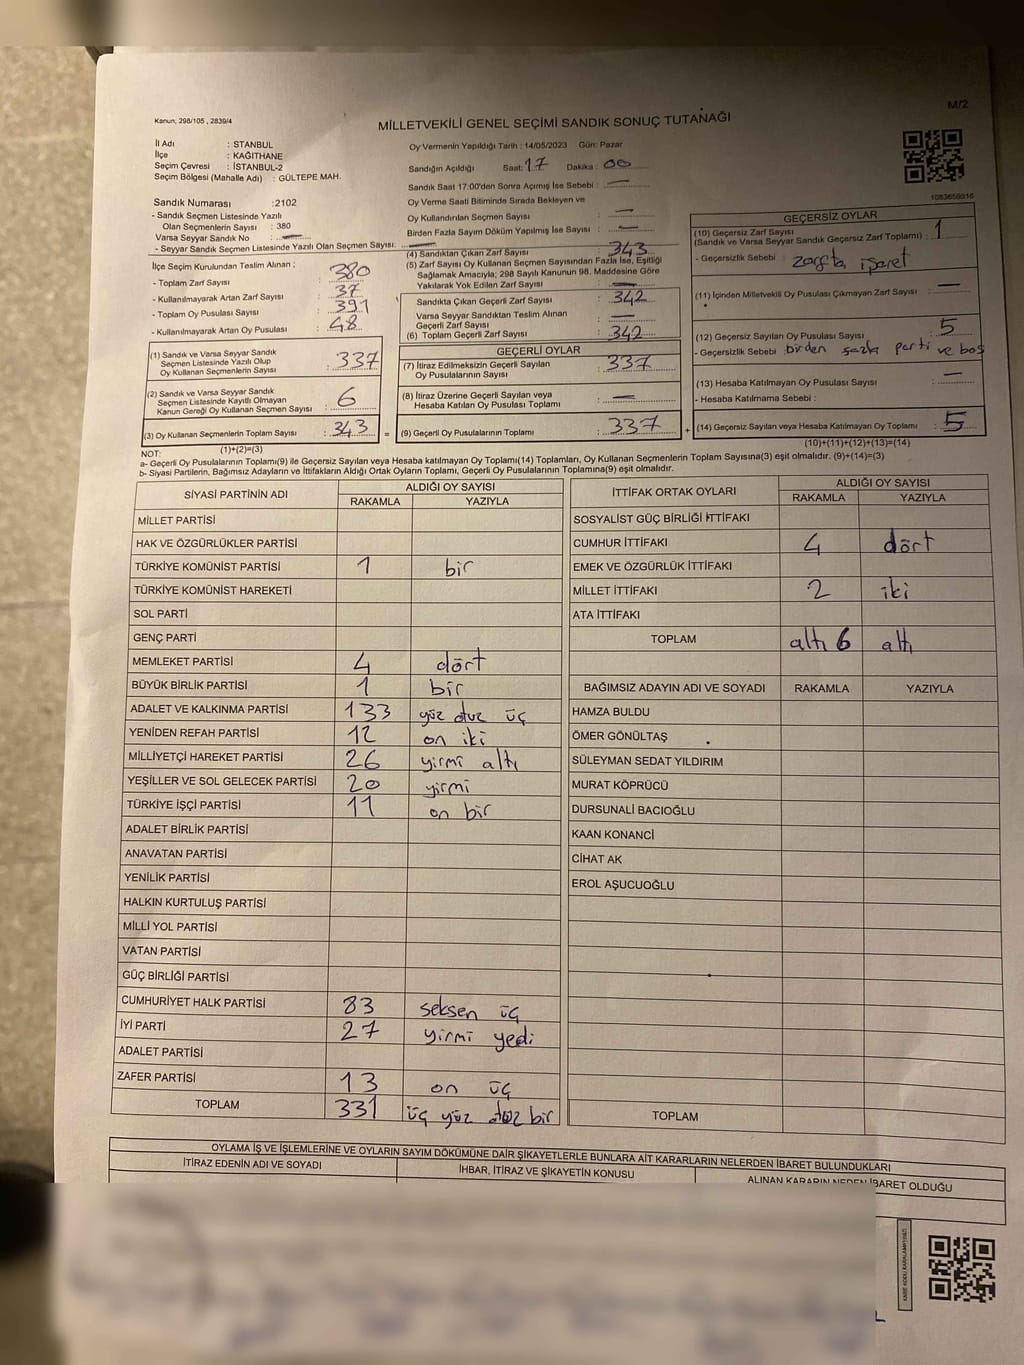 M/2
Kanun; 298/105 , 2839/4
MİLLETVEKİLİ GENEL SEÇİMİ SANDIK SONUÇ TUTANAĞI
İl Adı : İSTANBUL
İlçe : KAĞITHANE
Seçim Çevresi : İSTANBUL-2
Seçim Bölgesi (Mahalle Adı) : GÜLTEPE MAH.
Sandık Numarası :2102
- Sandık Seçmen Listesinde Yazılı
Olan Seçmenlerin Sayısı : 380
Varsa Seyyar Sandık No : —
- Seyyar Sandık Seçmen Listesinde Yazılı Olan Seçmen Sayısı: —
İlçe Seçim Kurulundan Teslim Alınan ;
- Toplam Zarf Sayısı : 380
- Kullanılmayarak Artan Zarf Sayısı : 37
- Toplam Oy Pusulası Sayısı : 391
- Kullanılmayarak Artan Oy Pusulası : 48
(1) Sandık ve Varsa Seyyar Sandık
Seçmen Listesinde Yazılı Olup
Oy Kullanan Seçmenlerin Sayısı : 337
(2) Sandık ve Varsa Seyyar Sandık
Seçmen Listesinde Kayıtlı Olmayan
Kanun Gereği Oy Kullanan Seçmen Sayısı : 6
(3) Oy Kullanan Seçmenlerin Toplam Sayısı : 343
(1)+(2)=(3)
Oy Vermenin Yapıldığı Tarih : 14/05/2023 Gün: Pazar
Sandığın Açıldığı Saat: 17 Dakika : 00
Sandık Saat 17:00'den Sonra Açılmış İse Sebebi : —
Oy Verme Saati Bitiminde Sırada Bekleyen ve
Oy Kullandırılan Seçmen Sayısı : —
Birden Fazla Sayım Döküm Yapılmış İse Sayısı : —
(4) Sandıktan Çıkan Zarf Sayısı : 343
(5) Zarf Sayısı Oy Kullanan Seçmen Sayısından Fazla İse, Eşitliği
Sağlamak Amacıyla; 298 Sayılı Kanunun 98. Maddesine Göre
Yakılarak Yok Edilen Zarf Sayısı : —
Sandıkta Çıkan Geçerli Zarf Sayısı : 342
Varsa Seyyar Sandıktan Teslim Alınan
Geçerli Zarf Sayısı : —
(6) Toplam Geçerli Zarf Sayısı : 342
GEÇERLİ OYLAR
(7) İtiraz Edilmeksizin Geçerli Sayılan
Oy Pusulalarının Sayısı : 337
(8) İtiraz Üzerine Geçerli Sayılan veya
Hesaba Katılan Oy Pusulası Toplamı : —
= (9) Geçerli Oy Pusulalarının Toplamı : 337 +
1083656916
GEÇERSİZ OYLAR
(10) Geçersiz Zarf Sayısı
(Sandık ve Varsa Seyyar Sandık Geçersiz Zarf Toplamı) : 1
- Geçersizlik Sebebi : zarfta işaret
(11) İçinden Milletvekili Oy Pusulası Çıkmayan Zarf Sayısı : —
(12) Geçersiz Sayılan Oy Pusulası Sayısı : 5
- Geçersizlik Sebebi : birden fazla parti ve boş
(13) Hesaba Katılmayan Oy Pusulası Sayısı : —
- Hesaba Katılmama Sebebi :
(14) Geçersiz Sayılan veya Hesaba Katılmayan Oy Toplamı : 5
(10)+(11)+(12)+(13)=(14)
NOT:
a- Geçerli Oy Pusulaları Toplamı(9) ile Geçersiz Sayılan veya Hesaba Katılmayan Oy Toplamı(14) Toplamları, Oy Kullanan Seçmenlerin Toplam Sayısına(3) eşit olmalıdır. (9)+(14)=(3)
b- Siyasi Partilerin, Bağımsız Adayların ve İttifakların Aldığı Ortak Oyların Toplamı, Geçerli Oy Pusulalarının Toplamına(9) eşit olmalıdır.
SİYASİ PARTİNİN ADI ALDIĞI OY SAYISI
RAKAMLA YAZIYLA
MİLLET PARTİSİ
HAK VE ÖZGÜRLÜKLER PARTİSİ
TÜRKİYE KOMÜNİST PARTİSİ 1 bir
TÜRKİYE KOMÜNİST HAREKETİ
SOL PARTİ
GENÇ PARTİ
MEMLEKET PARTİSİ 4 dört
BÜYÜK BİRLİK PARTİSİ 1 bir
ADALET VE KALKINMA PARTİSİ 133 yüz otuz üç
YENİDEN REFAH PARTİSİ 12 on iki
MİLLİYETÇİ HAREKET PARTİSİ 26 yirmi altı
YEŞİLLER VE SOL GELECEK PARTİSİ 20 yirmi
TÜRKİYE İŞÇİ PARTİSİ 11 on bir
ADALET BİRLİK PARTİSİ
ANAVATAN PARTİSİ
YENİLİK PARTİSİ
HALKIN KURTULUŞ PARTİSİ
MİLLİ YOL PARTİSİ
VATAN PARTİSİ
GÜÇ BİRLİĞİ PARTİSİ
CUMHURİYET HALK PARTİSİ 83 seksen üç
İYİ PARTİ 27 yirmi yedi
ADALET PARTİSİ
ZAFER PARTİSİ 13 on üç
TOPLAM 331 üç yüz otuz bir
İTTİFAK ORTAK OYLARI ALDIĞI OY SAYISI
RAKAMLA YAZIYLA
SOSYALİST GÜÇ BİRLİĞİ İTTİFAKI
CUMHUR İTTİFAKI 4 dört
EMEK VE ÖZGÜRLÜK İTTİFAKI
MİLLET İTTİFAKI 2 iki
ATA İTTİFAKI
TOPLAM altı 6 altı
BAĞIMSIZ ADAYIN ADI VE SOYADI RAKAMLA YAZIYLA
HAMZA BULDU
ÖMER GÖNÜLTAŞ
SÜLEYMAN SEDAT YILDIRIM
MURAT KÖPRÜCÜ
DURSUNALİ BACIOĞLU
KAAN KONANCİ
CİHAT AK
EROL AŞUCUOĞLU
TOPLAM
OYLAMA İŞ VE İŞLEMLERİNE VE OYLARIN SAYIM DÖKÜMÜNE DAİR ŞİKAYETLERLE BUNLARA AİT KARARLARIN NELERDEN İBARET BULUNDUKLARI
İTİRAZ EDENİN ADI VE SOYADI İHBAR, İTİRAZ VE ŞİKAYETİN KONUSU ALINAN KARARIN NEDEN İBARET OLDUĞU